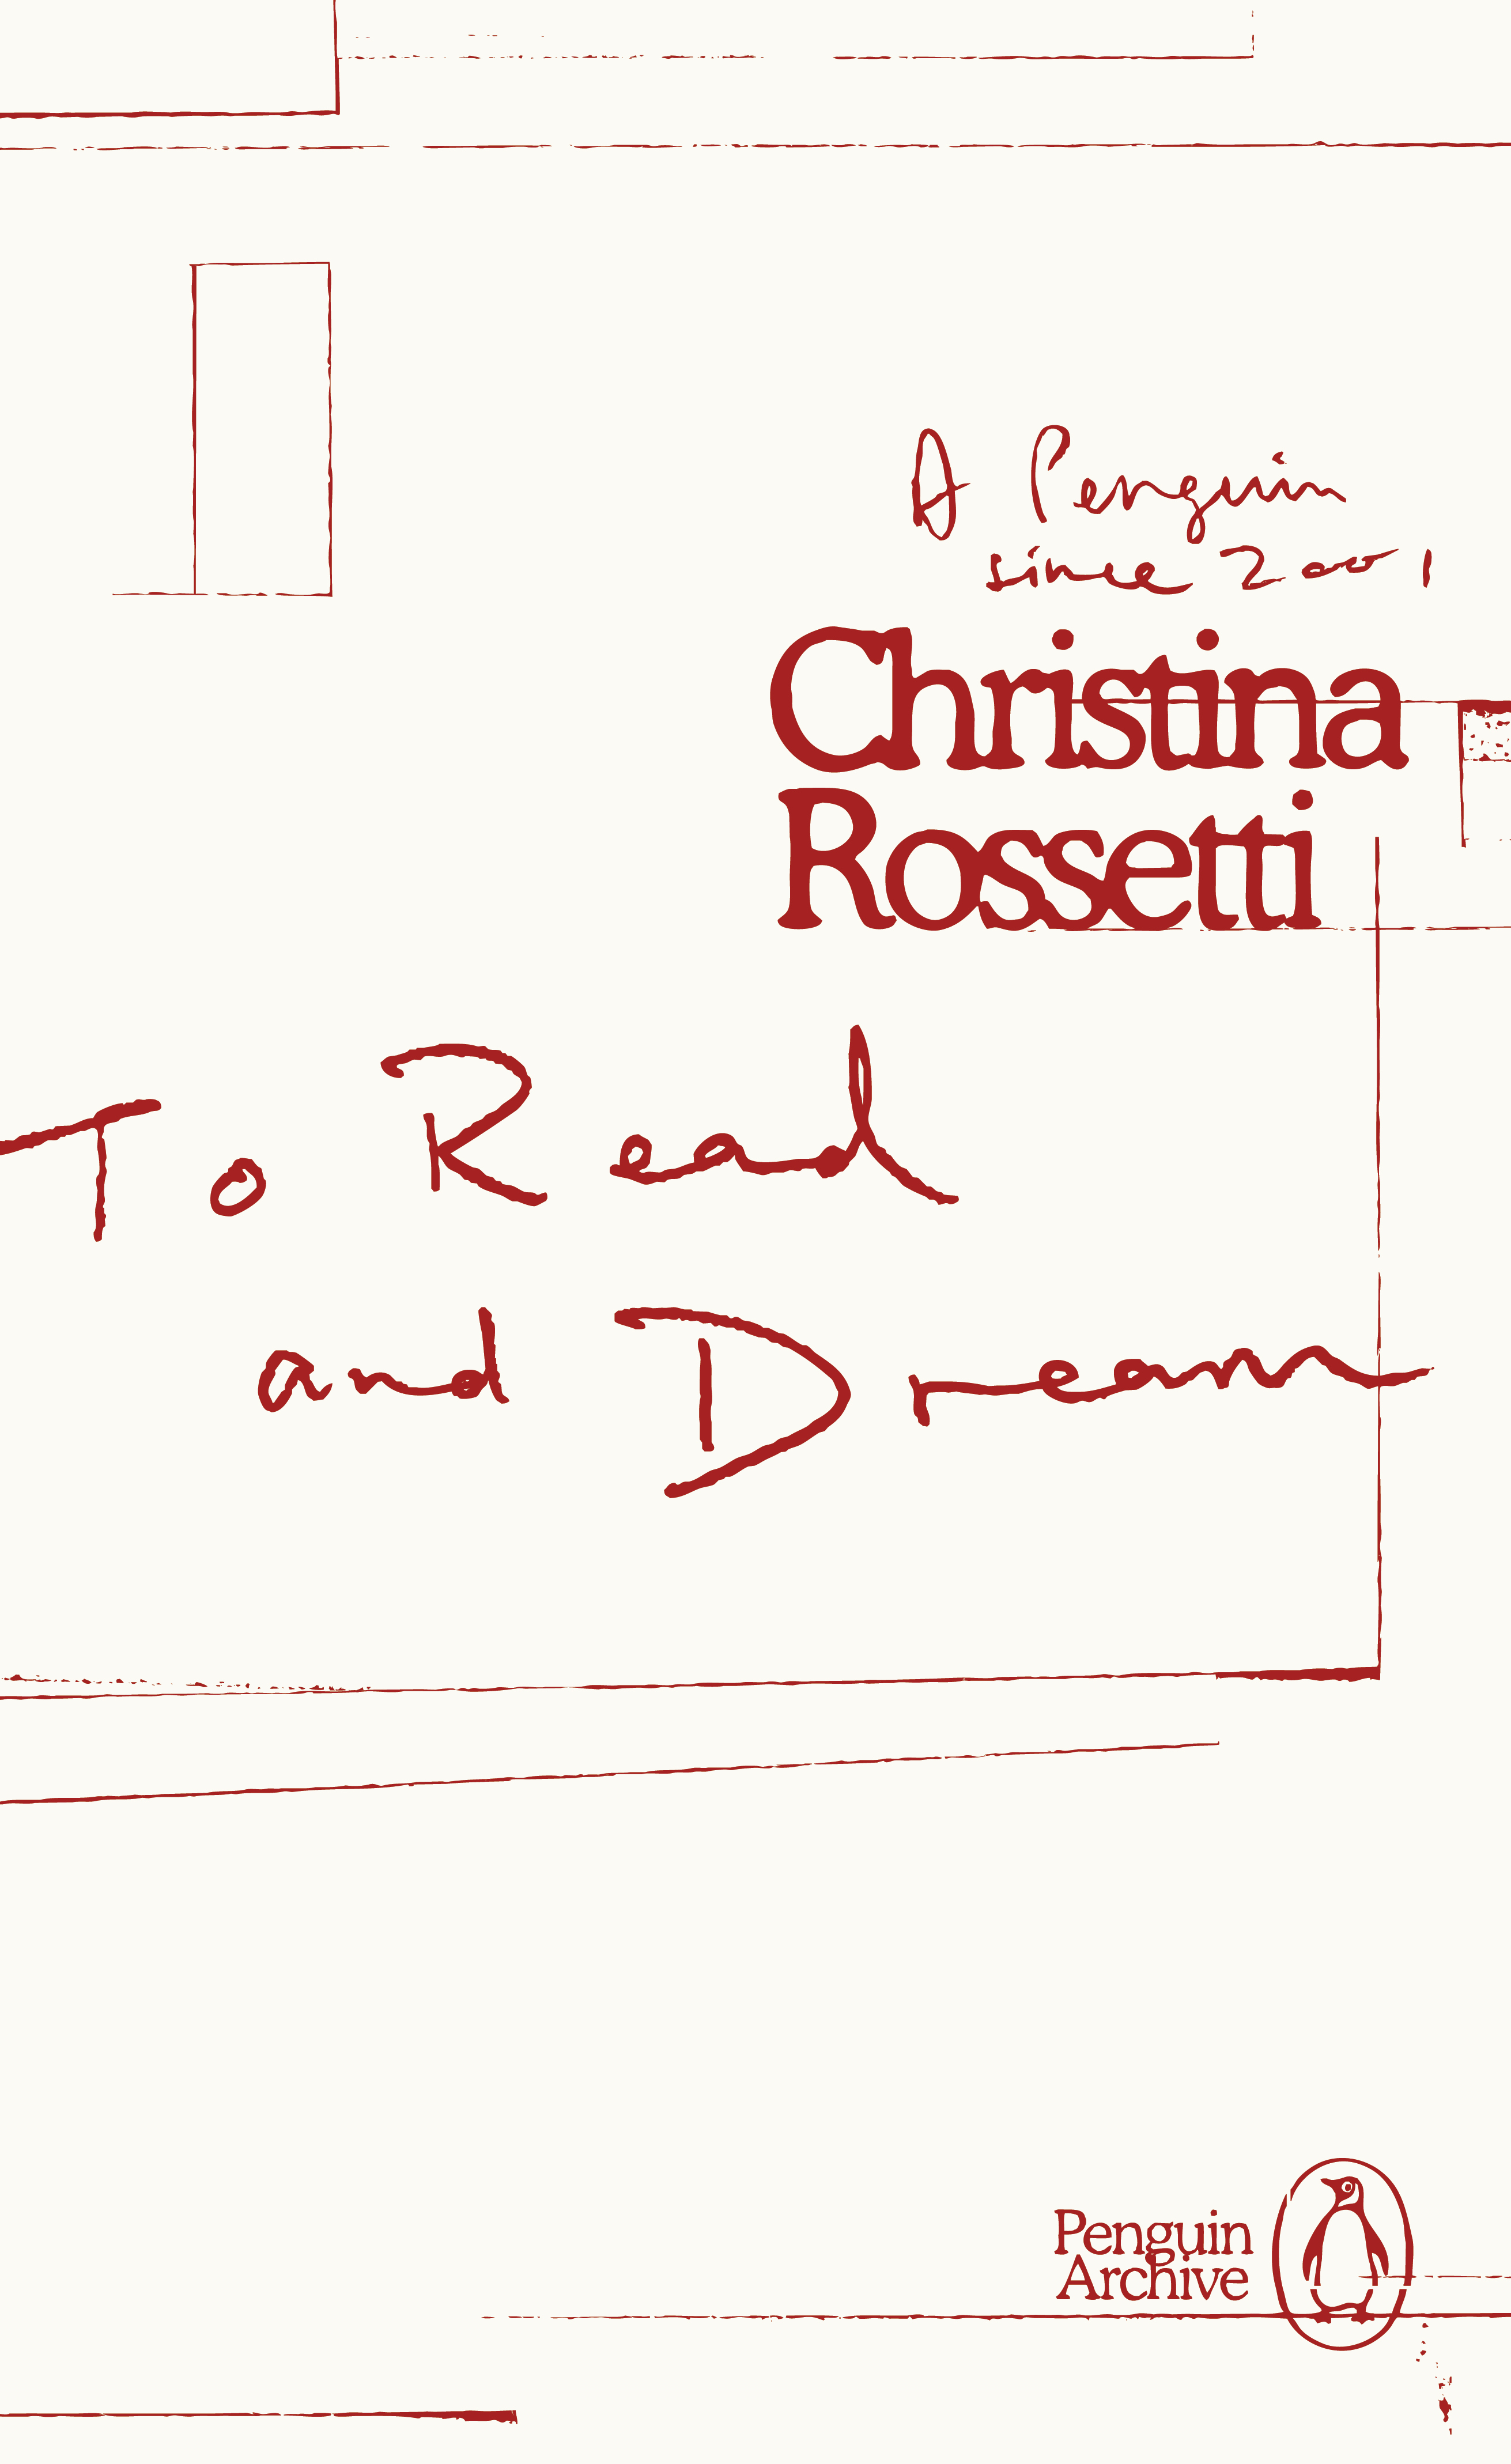 A Penguin
since 2001
Christina
Rossetti
To Read
and Dream
Penguin
Archive